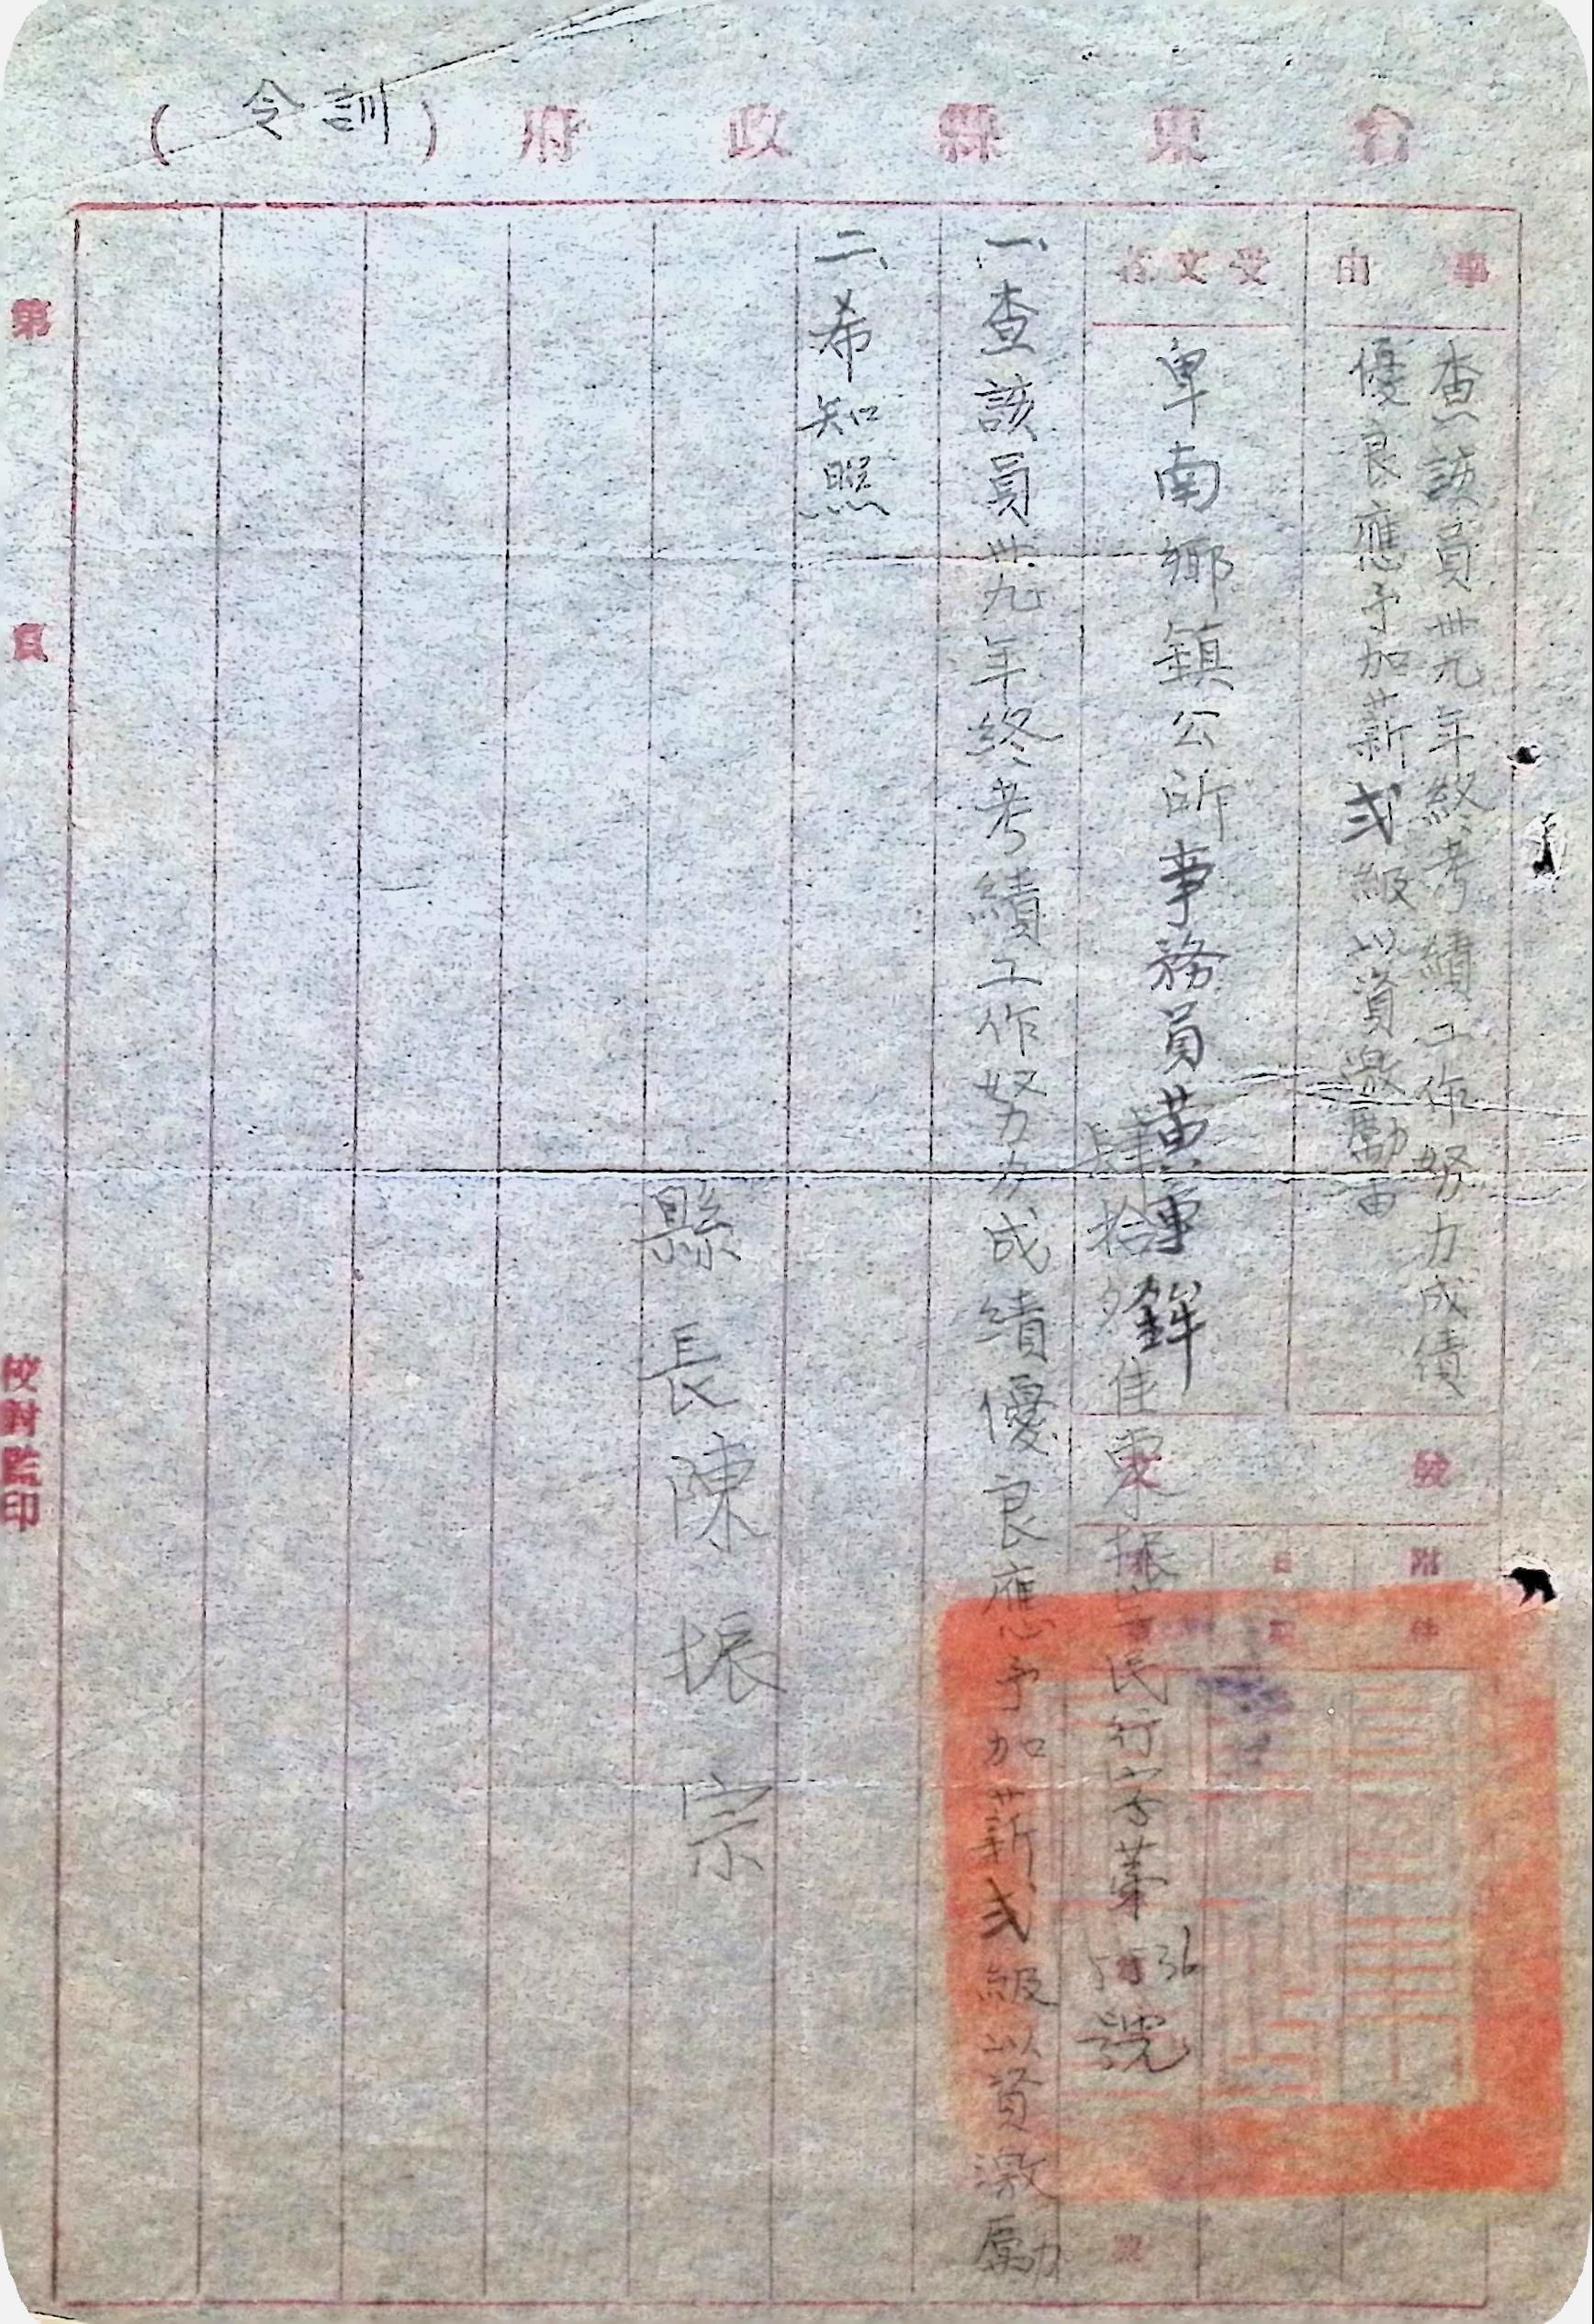 台東縣政府（訓令）
事由
查該員卅九年終考績工作努力成績
優良應予加薪弍級以資激勵由
受文者
卑南鄉鎮公所事務員黃
發
附件
日
肆拾
東
民行字第
號
一、查該員卅九年終考績工作努力成績優良應予加薪弍級以資激勵
二、希知照
縣長陳振宗
第
頁
校對監印